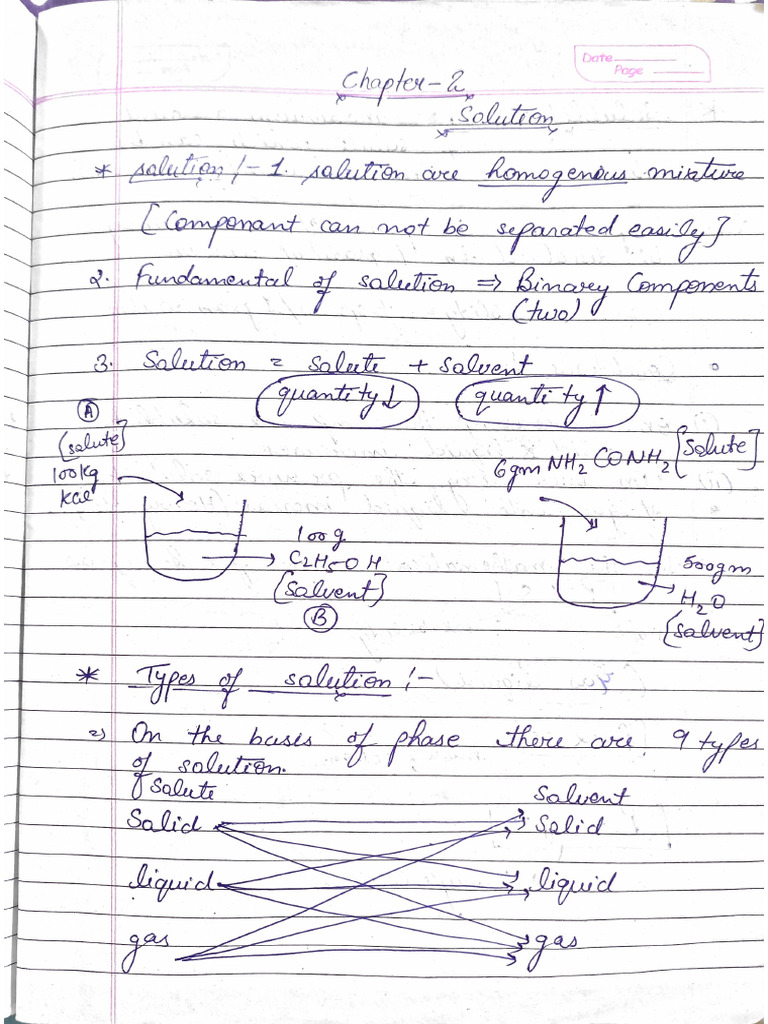 Date
Page
Chapter-2
Solution
* solution :- 1. solution are homogenous mixture
[Componant can not be separated easily]
2. Fundamental of solution ⇒ Binary Components
(two)
3. Solution = solute + solvent
quantity↓ quantity↑
(A)
[solute]
100kg
KCl
6gm NH2 CONH2 [solute]
100g
C2H5OH
[solvent]
(B)
500gm
H2O
[solvent]
* Types of solution :-
⇒ On the basis of phase there are 9 types
of solution.
solute solvent
Solid Solid
liquid liquid
gas gas